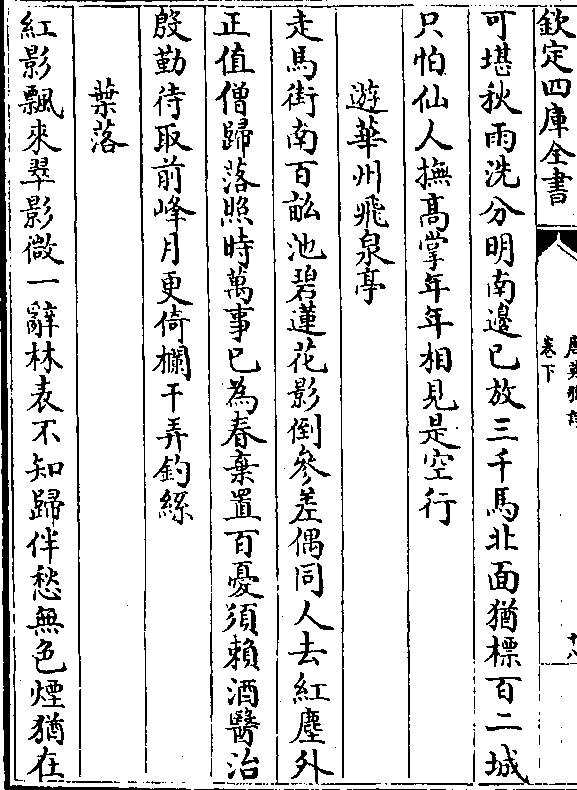 欽定四庫全書
卷下
十八
可堪秋雨洗分明南邊已放三千馬北面猶標百二城
只怕仙人撫高掌年年相見是空行
遊華州飛泉亭
走馬街南百畝池碧蓮花影倒參差偶同人去紅塵外
正值僧歸落照時萬事已為春棄置百憂須賴酒醫治
殷勤待取前峰月更倚欄干弄釣絲
葉落
紅影飄來翠影微一辭林表不知歸伴愁無色煙猶在